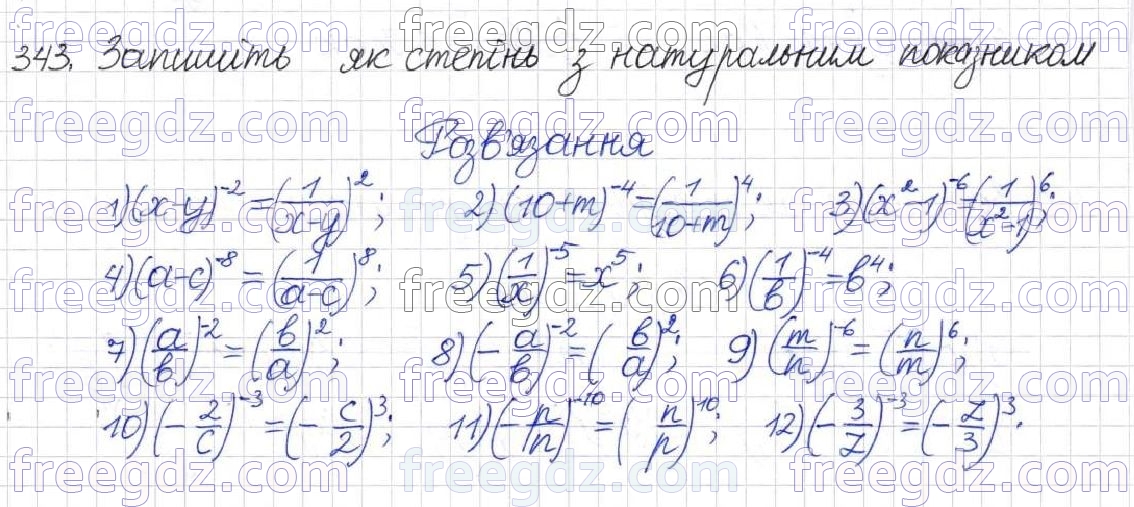 343. Запишіть як степінь з натуральним показником
Розв'язання
1) (x-y)^-2 = (1/(x-y))^2; 2) (10+m)^-4 = (1/(10+m))^4; 3) (x^2-1)^-6 = (1/(x^2-1))^6;
4) (a-c)^-8 = (1/(a-c))^8; 5) (1/x)^-5 = x^5; 6) (1/в)^-4 = в^4;
7) (a/в)^-2 = (в/a)^2; 8) (-a/в)^-2 = (в/a)^2; 9) (m/n)^-6 = (n/m)^6;
10) (-2/c)^-3 = (-c/2)^3; 11) (-p/n)^-10 = (n/p)^10; 12) (-3/z)^-3 = (-z/3)^3.
freegdz.com